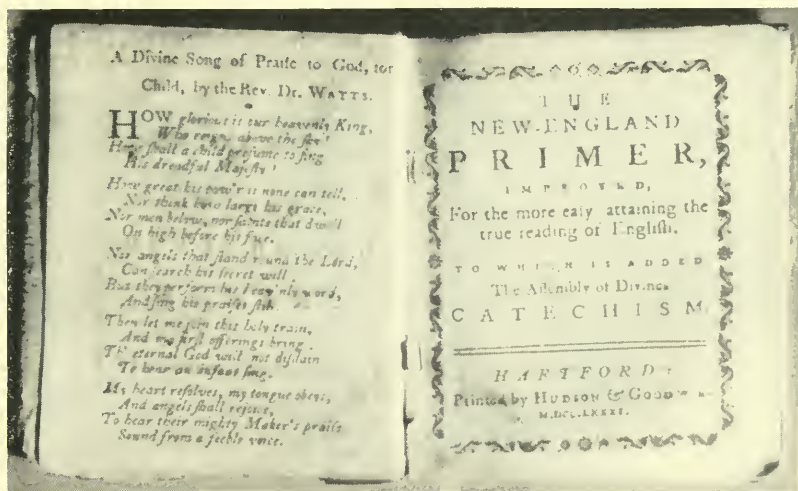 A Divine Song of Praiſe to God, for
Child, by the Rev. Dr. WATTS.
HOW glorious is our heavenly King,
Who reigns above the ſky!
How ſhall a child preſume to ſing
His dreadful Majeſty!
How great his pow'r is none can tell,
Nor think how large his grace,
Nor men below, nor ſaints that dwell
On high before his face.
Nor angels that ſtand round the Lord,
Can ſearch his ſecret will
But they perform his heav'nly word,
And ſing his praiſes ſtill.
Then let me join this holy train,
And my firſt offerings bring
Th' eternal God will not diſdain
To hear an infant ſing.
My heart reſolves, my tongue obeys,
And angels ſhall rejoice,
To hear their mighty Maker's praiſe
Sound from a feeble voice.
THE
NEW-ENGLAND
PRIMER,
IMPROVED,
For the more eaſy attaining the
true reading of Engliſh.
TO WHICH IS ADDED
The Aſſembly of Divines
CATECHISM.
HARTFORD:
Printed by HUDSON & GOODWIN
M.DCC.LXXXI.